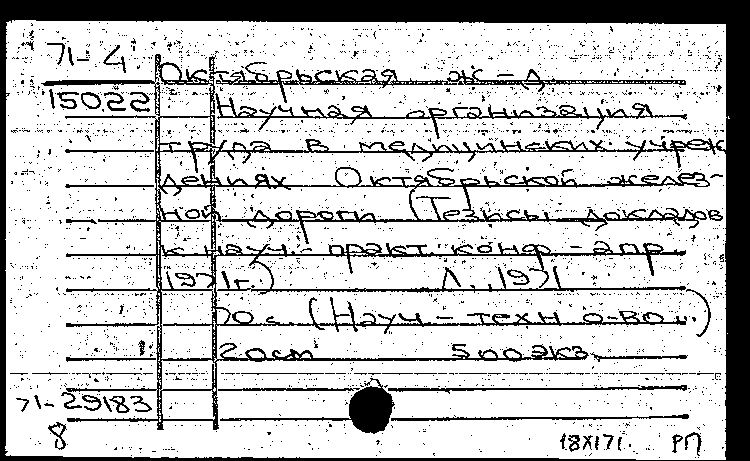 71-4
Октябрьская ж-д
15022
Научная организация
труда в медицинских учреж
дениях Октябрьской желез-
ной дороги (Тезисы докладов
к науч.-практ. конф - апр
1971г.) Л., 1971
70 с. (Науч-техн о-во
20cm 500экз.
71-29183
8
18X171 РП